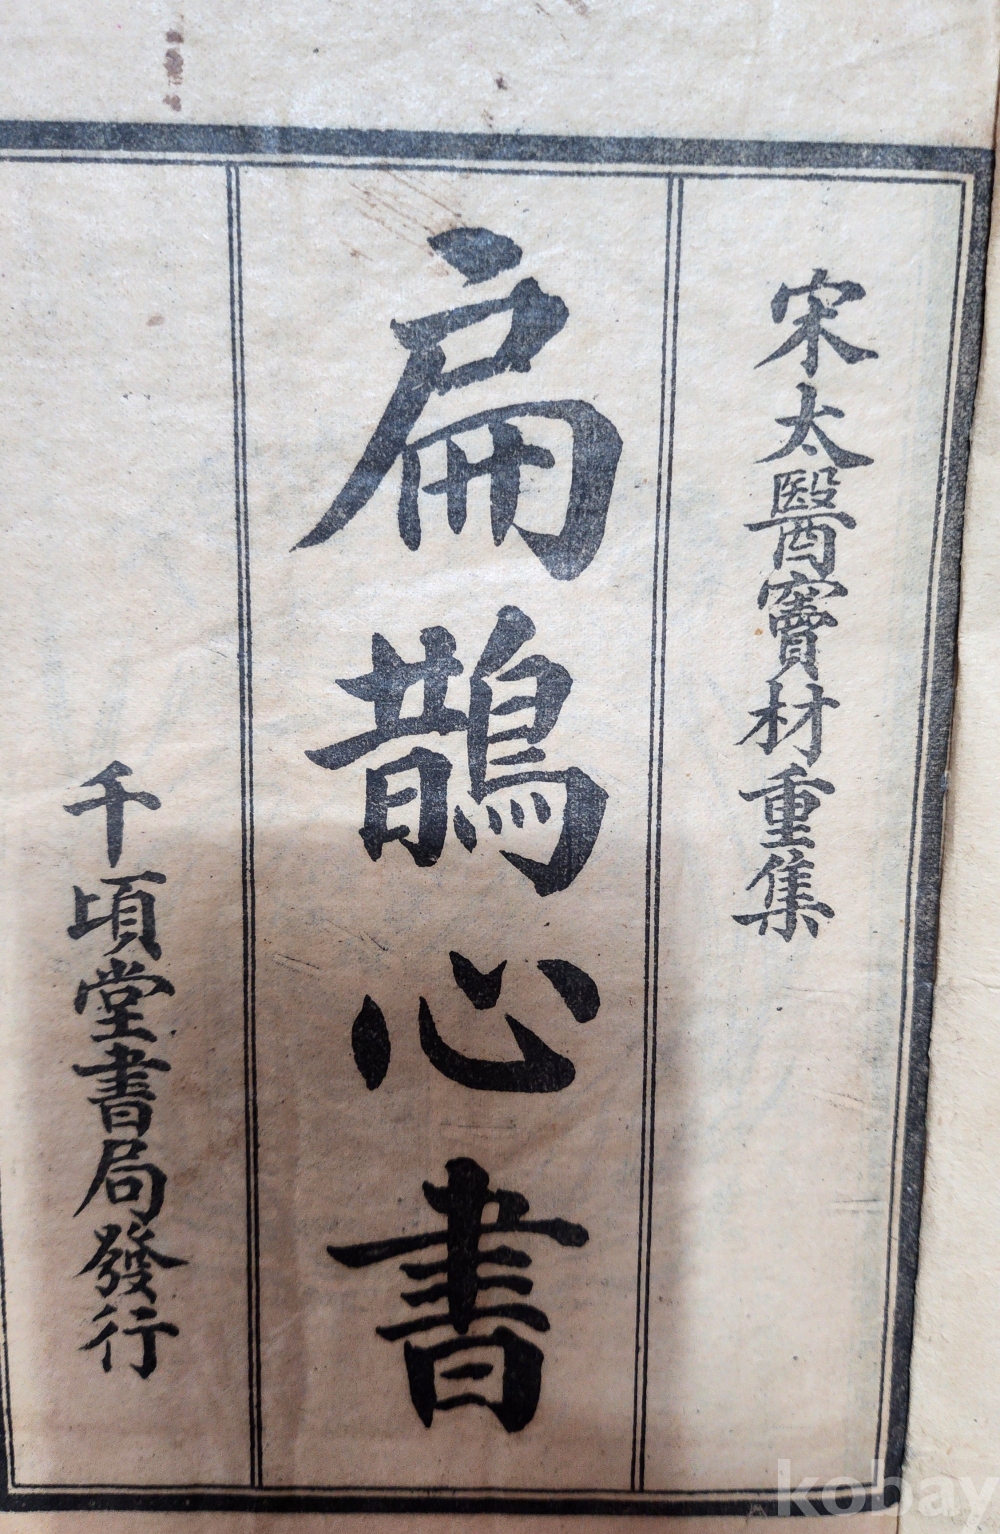 宋太醫竇材重集
扁鵲心書
千頃堂書局發行
kobay